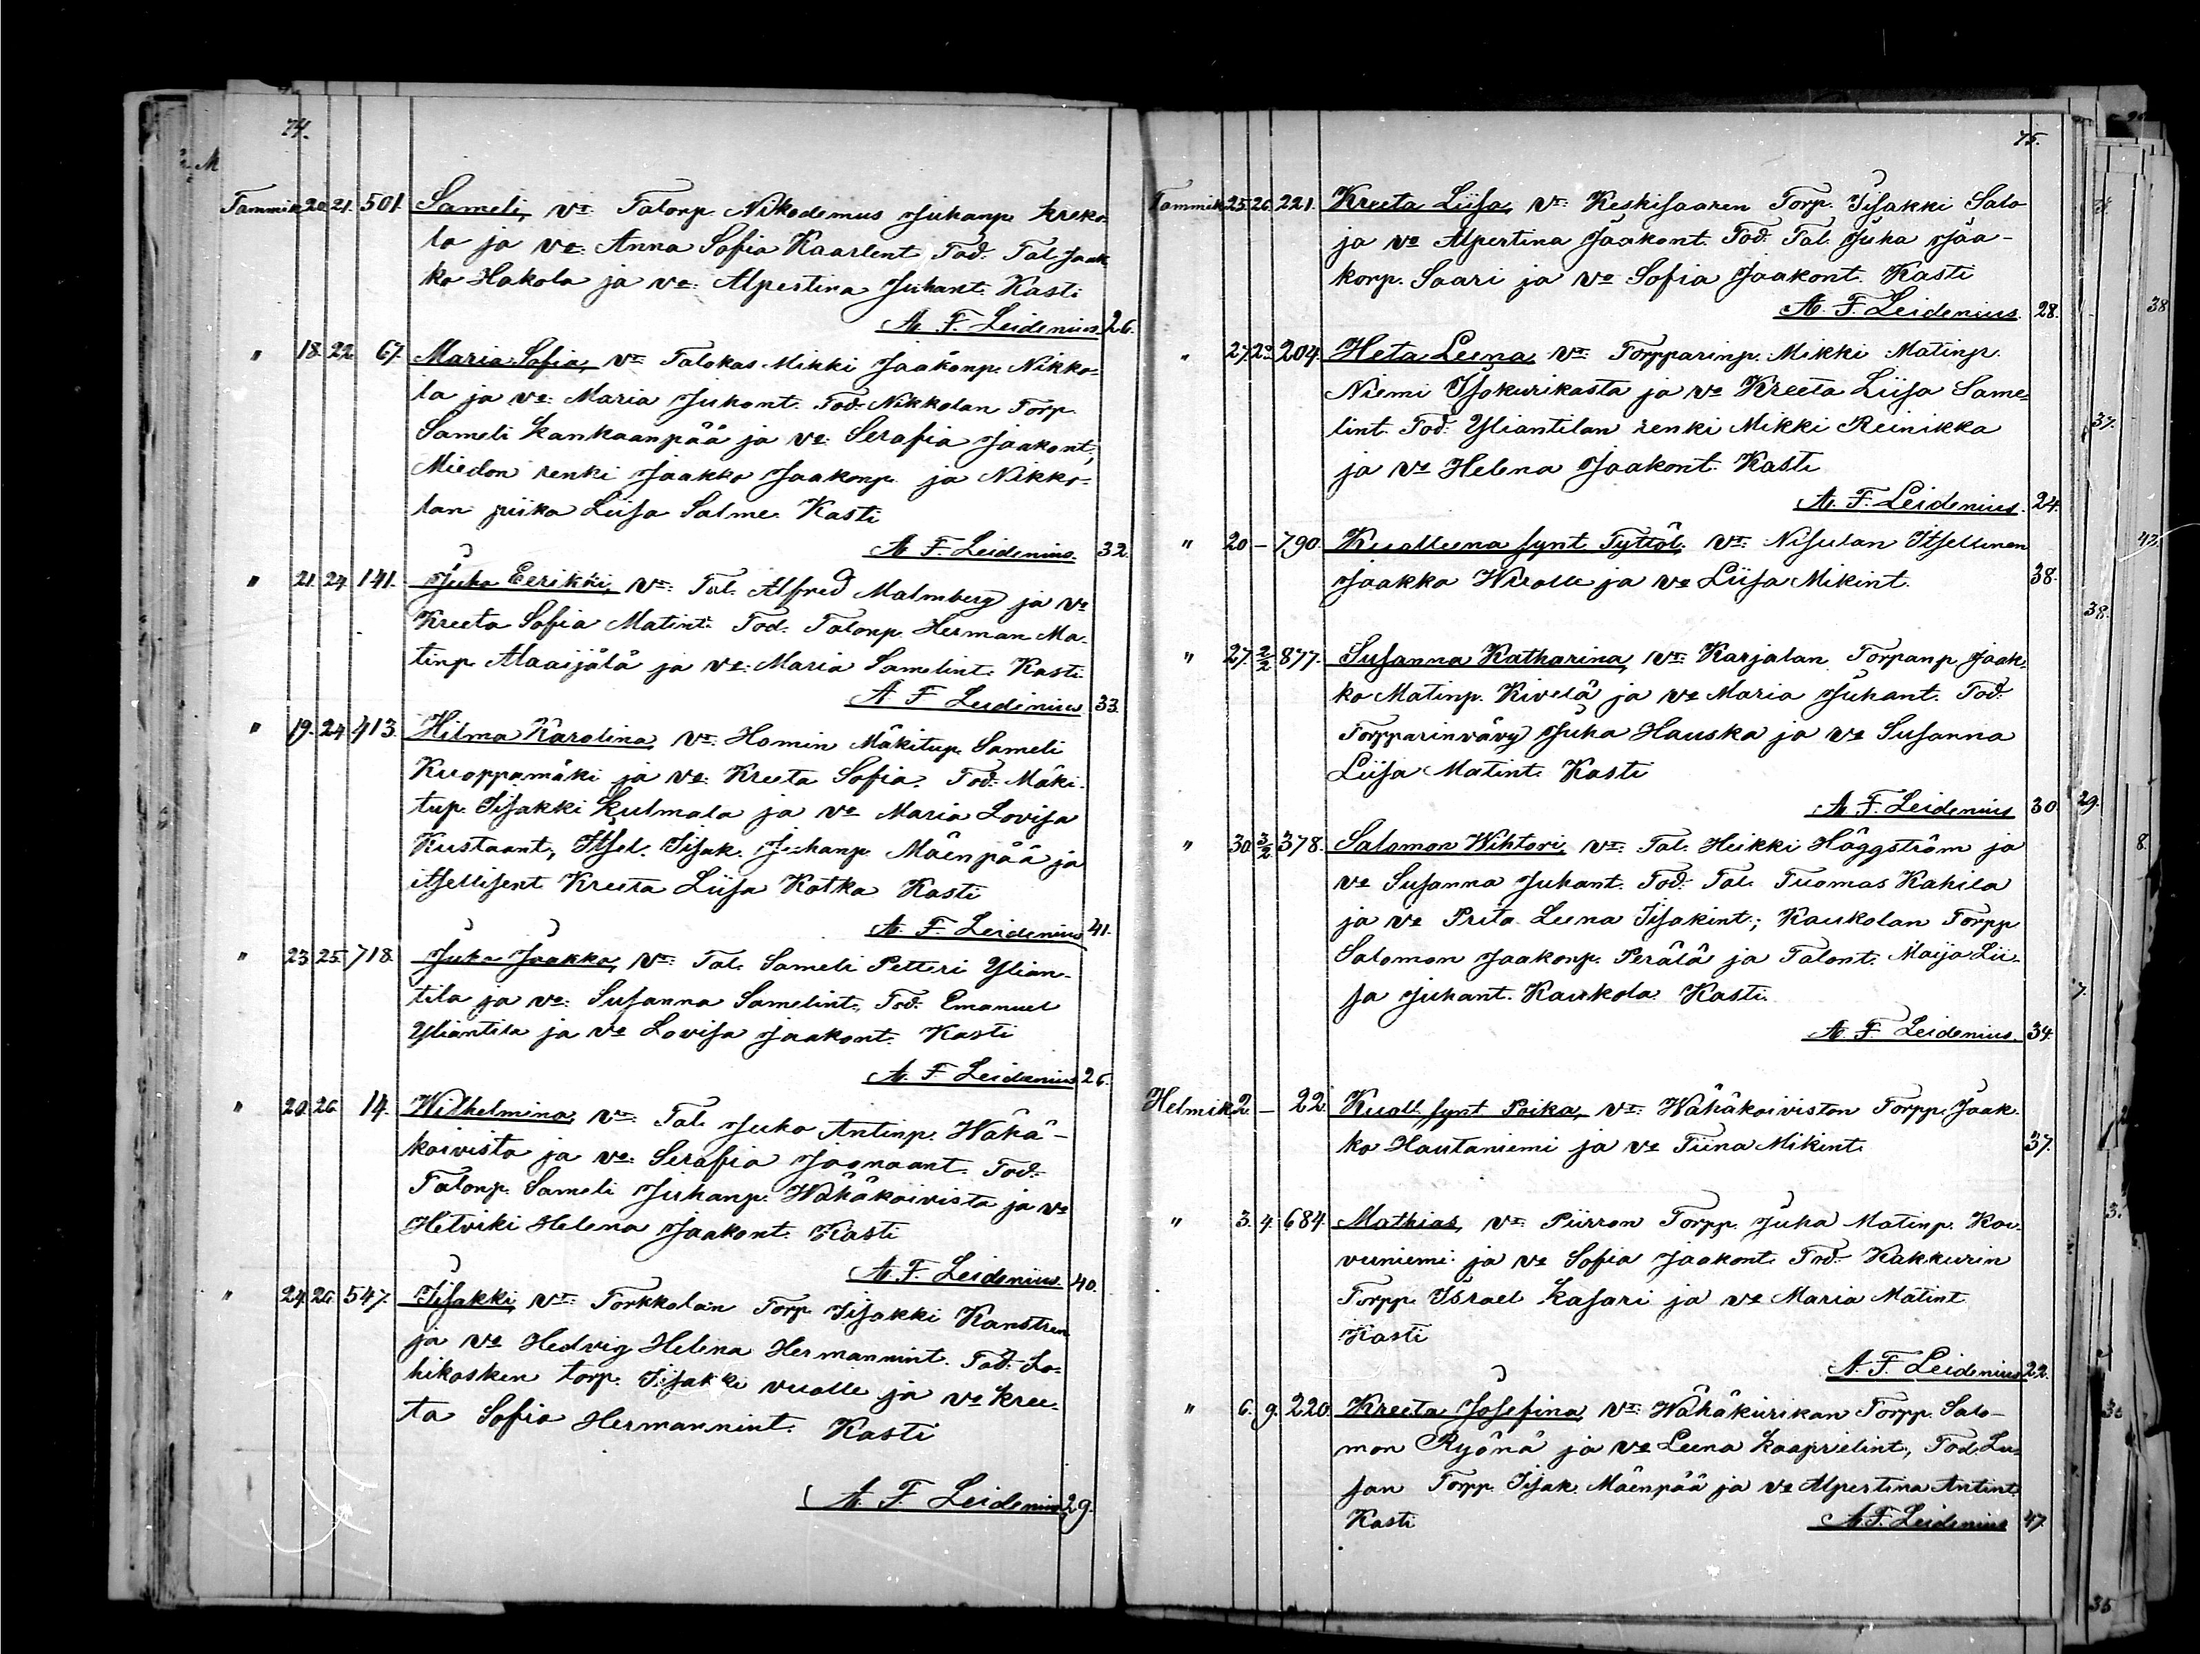 74.
Tammik. 20. 21. 501. Sameli, vt: Talonp. Nikodemus Juhanp. Kreko-
la ja vo: Anna Sofia Kaarlent. Tod: Tal. Jaak-
ko Hakola ja vo: Alpertina Juhant. Kasti
A. F. Leidenius. 26.
" 18. 22. 67. Maria Sofia, vt: Talokas Mikki Jaakonp. Nikko-
la ja vo: Maria Juhont. Tod: Nikkolan Torp.
Sameli Kankaanpää ja vo: Serafia Jaakont.,
Miedon renki Jaakko Jaakonp. ja Nikko-
lan piika Liisa Salme. Kasti
A. F. Leidenius. 32.
" 21. 24. 141. Juho Eerikki, vt: Tal. Alfred Malmberg ja vo
Kreeta Sofia Matint. Tod: Talonp. Herman Ma-
tinp. Alaaijälä ja vo: Maria Samelint. Kasti
A F Leidenius 33.
" 19. 24. 413. Hilma Karolina, vt: Homin Mäkitup. Sameli
Kuoppamäki ja vo: Kreeta Sofia. Tod: Mäki-
tup. Iisakki Kulmala ja vo Maria Lovisa
Kustaant., Itsel. Iisak. Juhanp. Mäenpää ja
itsellisent Kreeta Liisa Kotka Kasti
A. F. Leidenius 41.
" 23. 25. 718. Juho Jaakko, vt: Tal. Sameli Petteri Ylian-
tila ja vo: Susanna Samelint. Tod: Emanuel
Yliantila ja vo Lovisa Jaakont. Kasti
A. F. Leidenius 26.
" 20. 26. 14. Wilhelmina, vt: Tal. Juho Antinp. Wähä-
koivisto ja vo: Serafia Joonaant. Tod:
Talonp. Sameli Juhanp. Wähäkoivisto ja vo
Hetviki Helena Jaakont. Kasti
A. F. Leidenius. 40.
" 24. 26. 547. Iisakki, vt: Torkkolan Torp. Iisakki Kanstren
ja vo Hedvig Helena Hermannint. Tod: Lo-
hikosken torp. Iisakki vuolle ja vo Kree-
ta Sofia Hermannint. Kasti
A. F. Leidenius 29.
75.
Tammik. 25. 26. 221. Kreeta Liisa, vt: Keskisaaren Torp. Iisakki Salo
ja vo Alpertina Jaakont. Tod: Tal. Juha Jaa-
korp. Saari ja vo Sofia Jaakont. Kasti
A. F. Leidenius. 28.
" 27. 204. Heta Leena, vt: Torpparinp. Mikki Matinp.
Niemi Isokurikasta ja vo Kreeta Liisa Same-
lint. Tod: Yliantilan renki Mikki Reinikka
ja vo Helena Jaakont. Kasti
A. F. Leidenius. 24.
" 20 – 790. Kuolleena synt. Tyttöl. vt: Nisulan Itsellinen
Jaakko Wuolle ja vo Liisa Mikint. 38.
" 27. 2/2 877. Susanna Katharina, vt: Karjalan Torpanp. Jaak-
ko Matinp. Kivelä ja vo Maria Juhant. Tod:
Torpparinvävy Juha Hauska ja vo Susanna
Liisa Matint. Kasti
A. F. Leidenius 30
" 30. 3/2 378. Salomon Wihtori, vt: Tal. Heikki Häggström ja
vo Susanna Juhant. Tod: Tal. Tuomas Kahila
ja vo Prita Leena Iisakint.; Kaukolan Torpp.
Salomon Jaakonp. Perälä ja Talont. Maija Lii-
sa Juhant. Kaukola. Kasti.
A. F. Leidenius. 34.
Helmik. 2 – 22. Kuoll. synt. Poika, vt: Wähäkoiviston Torpp. Jaak-
ko Hautaniemi ja vo Tiina Mikint. 37.
" 3. 4. 684. Mathias, vt: Piirron Torpp. Juha Matinp. Koi-
vuniemi ja vo Sofia Jaakont. Tod: Kakkurin
Torpp. Israel Kasari ja vo Maria Matint.
Kasti
A. F. Leidenius 22.
" 6. 9. 220. Kreeta Josefina, vt: Wähäkurikan Torpp. Salo-
mon Ryönä ja vo Leena Kaaprielint., Tod. Lu-
san Torpp. Iisak. Mäenpää ja vo Alpertina Antint.
Kasti A. F. Leidenius 47.